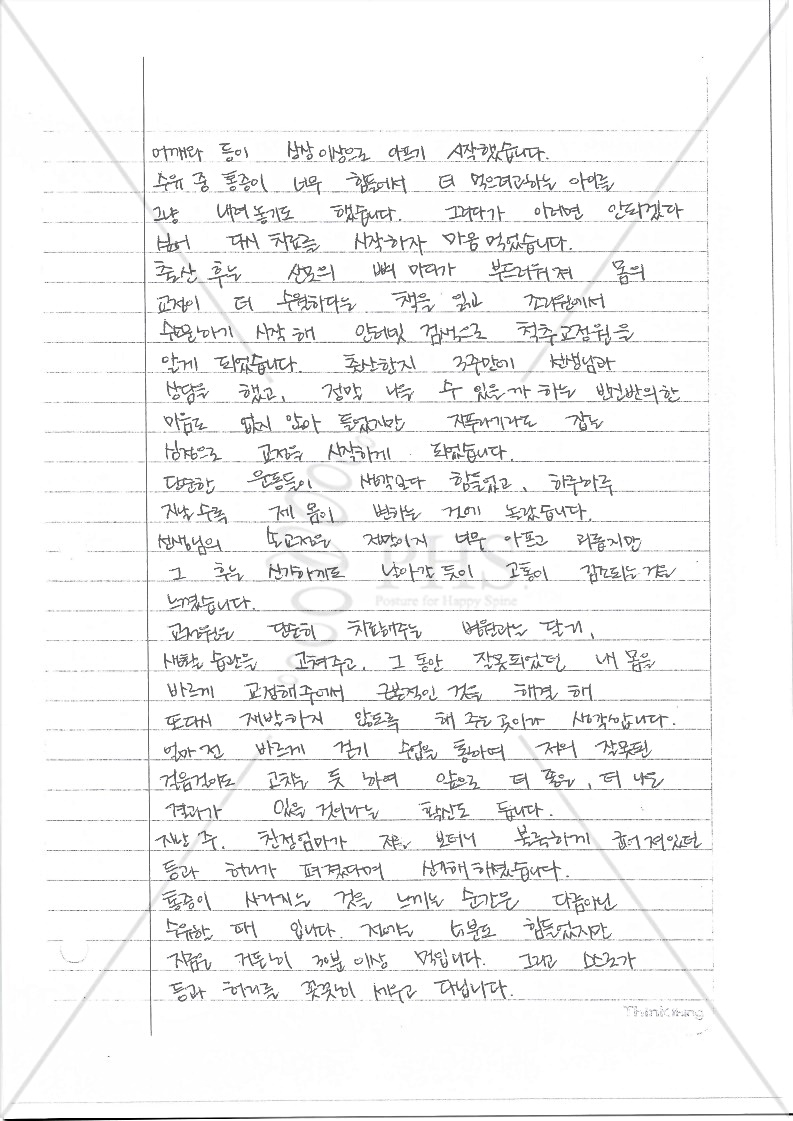 어깨와 등이 상상 이상으로 아프기 시작했습니다.
수유 중 통증이 너무 힘들어서 더 먹으려고하는 아이를
그냥 내려놓기도 했습니다. 그러다가 이러면 안되겠다
싶어 다시 치료를 시작하자 마음 먹었습니다.
출산 후는 산모의 뼈 마디가 부드러워져 몸의
교정이 더 수월하다는 책을 읽고 조리원에서
수소문하기 시작 해 인터넷 검색으로 척추교정원을
알게 되었습니다. 출산한지 3주만에 선생님과
상담을 했고, 정말 나을 수 있을까 하는 반신반의한
마음도 없지 않아 들었지만 지푸라기라도 잡는
심정으로 교정을 시작하게 되었습니다.
단순한 운동들이 생각보다 힘들었고, 하루하루
지날 수록 제 몸이 변하는 것에 놀랐습니다.
선생님의 손교정은 정말이지 너무 아프고 괴롭지만
그 후는 신기하게도 날아갈 듯이 고통이 감소되는 것을
느꼈습니다.
교정원은 단순히 치료해주는 병원과는 달리,
생활 습관을 고쳐주고, 그 동안 잘못되었던 내 몸을
바르게 교정해주어서 근본적인 것을 해결 해
또다시 재발하지 않도록 해 주는 곳이라 생각합니다.
얼마 전 바르게 걷기 수업을 통하여 저의 잘못된
걸음걸이도 고치는 듯 하여 앞으로 더 좋은, 더 나은
결과가 있을 것이라는 확신도 듭니다.
지난 주, 친정엄마가 저를 보더니 볼록하게 굽어져있던
등과 허리가 펴졌다며 신기해 하셨습니다.
통증이 사라지는 것을 느끼는 순간은 다름아닌
수유할 때 입니다. 전에는 5분도 힘들었지만
지금은 거뜬히 30분 이상 먹입니다. 그리고 스스로가
등과 허리를 꼿꼿이 세우고 다닙니다.
PHS
Posture for Happy Spine